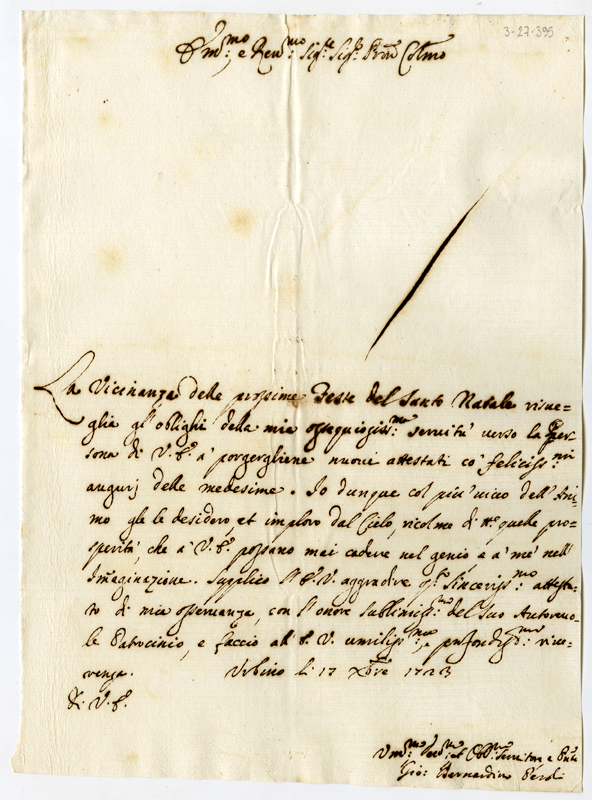 3-27-395
Ill.mo e Rev.mo Sig.re Sig.re Pron Col.mo
La Vicinanza delle prossime Feste del Santo Natale risue=
glia gl'oblighi della mia ossequiosiss.ma servitù verso la Per=
sona di V.S. à porgergliene nuovi attestati co' feliciss.mi
augurj delle medesime. Io dunque col più vivo dell'Ani=
mo gle le desidero, et imploro dal Cielo, ricolmo di tte quelle pro=
sperità, che à V.S. possano mai cadere nel genio e à me nell'
Imaginazione. Supplico V.S. aggradire q.to sinceriss.mo attesta=
to di mia osservanza, con l'onore sublimiss.mo del suo Autorevo=
le Patrocinio, e faccio all V. umiliss.ma, e profondiss.ma rive=
renza. Urbino li 17 Xbre 1723
Di V.S.
Um.mo Dev.mo et Obb.mo Servitore
Gio: Bernardino